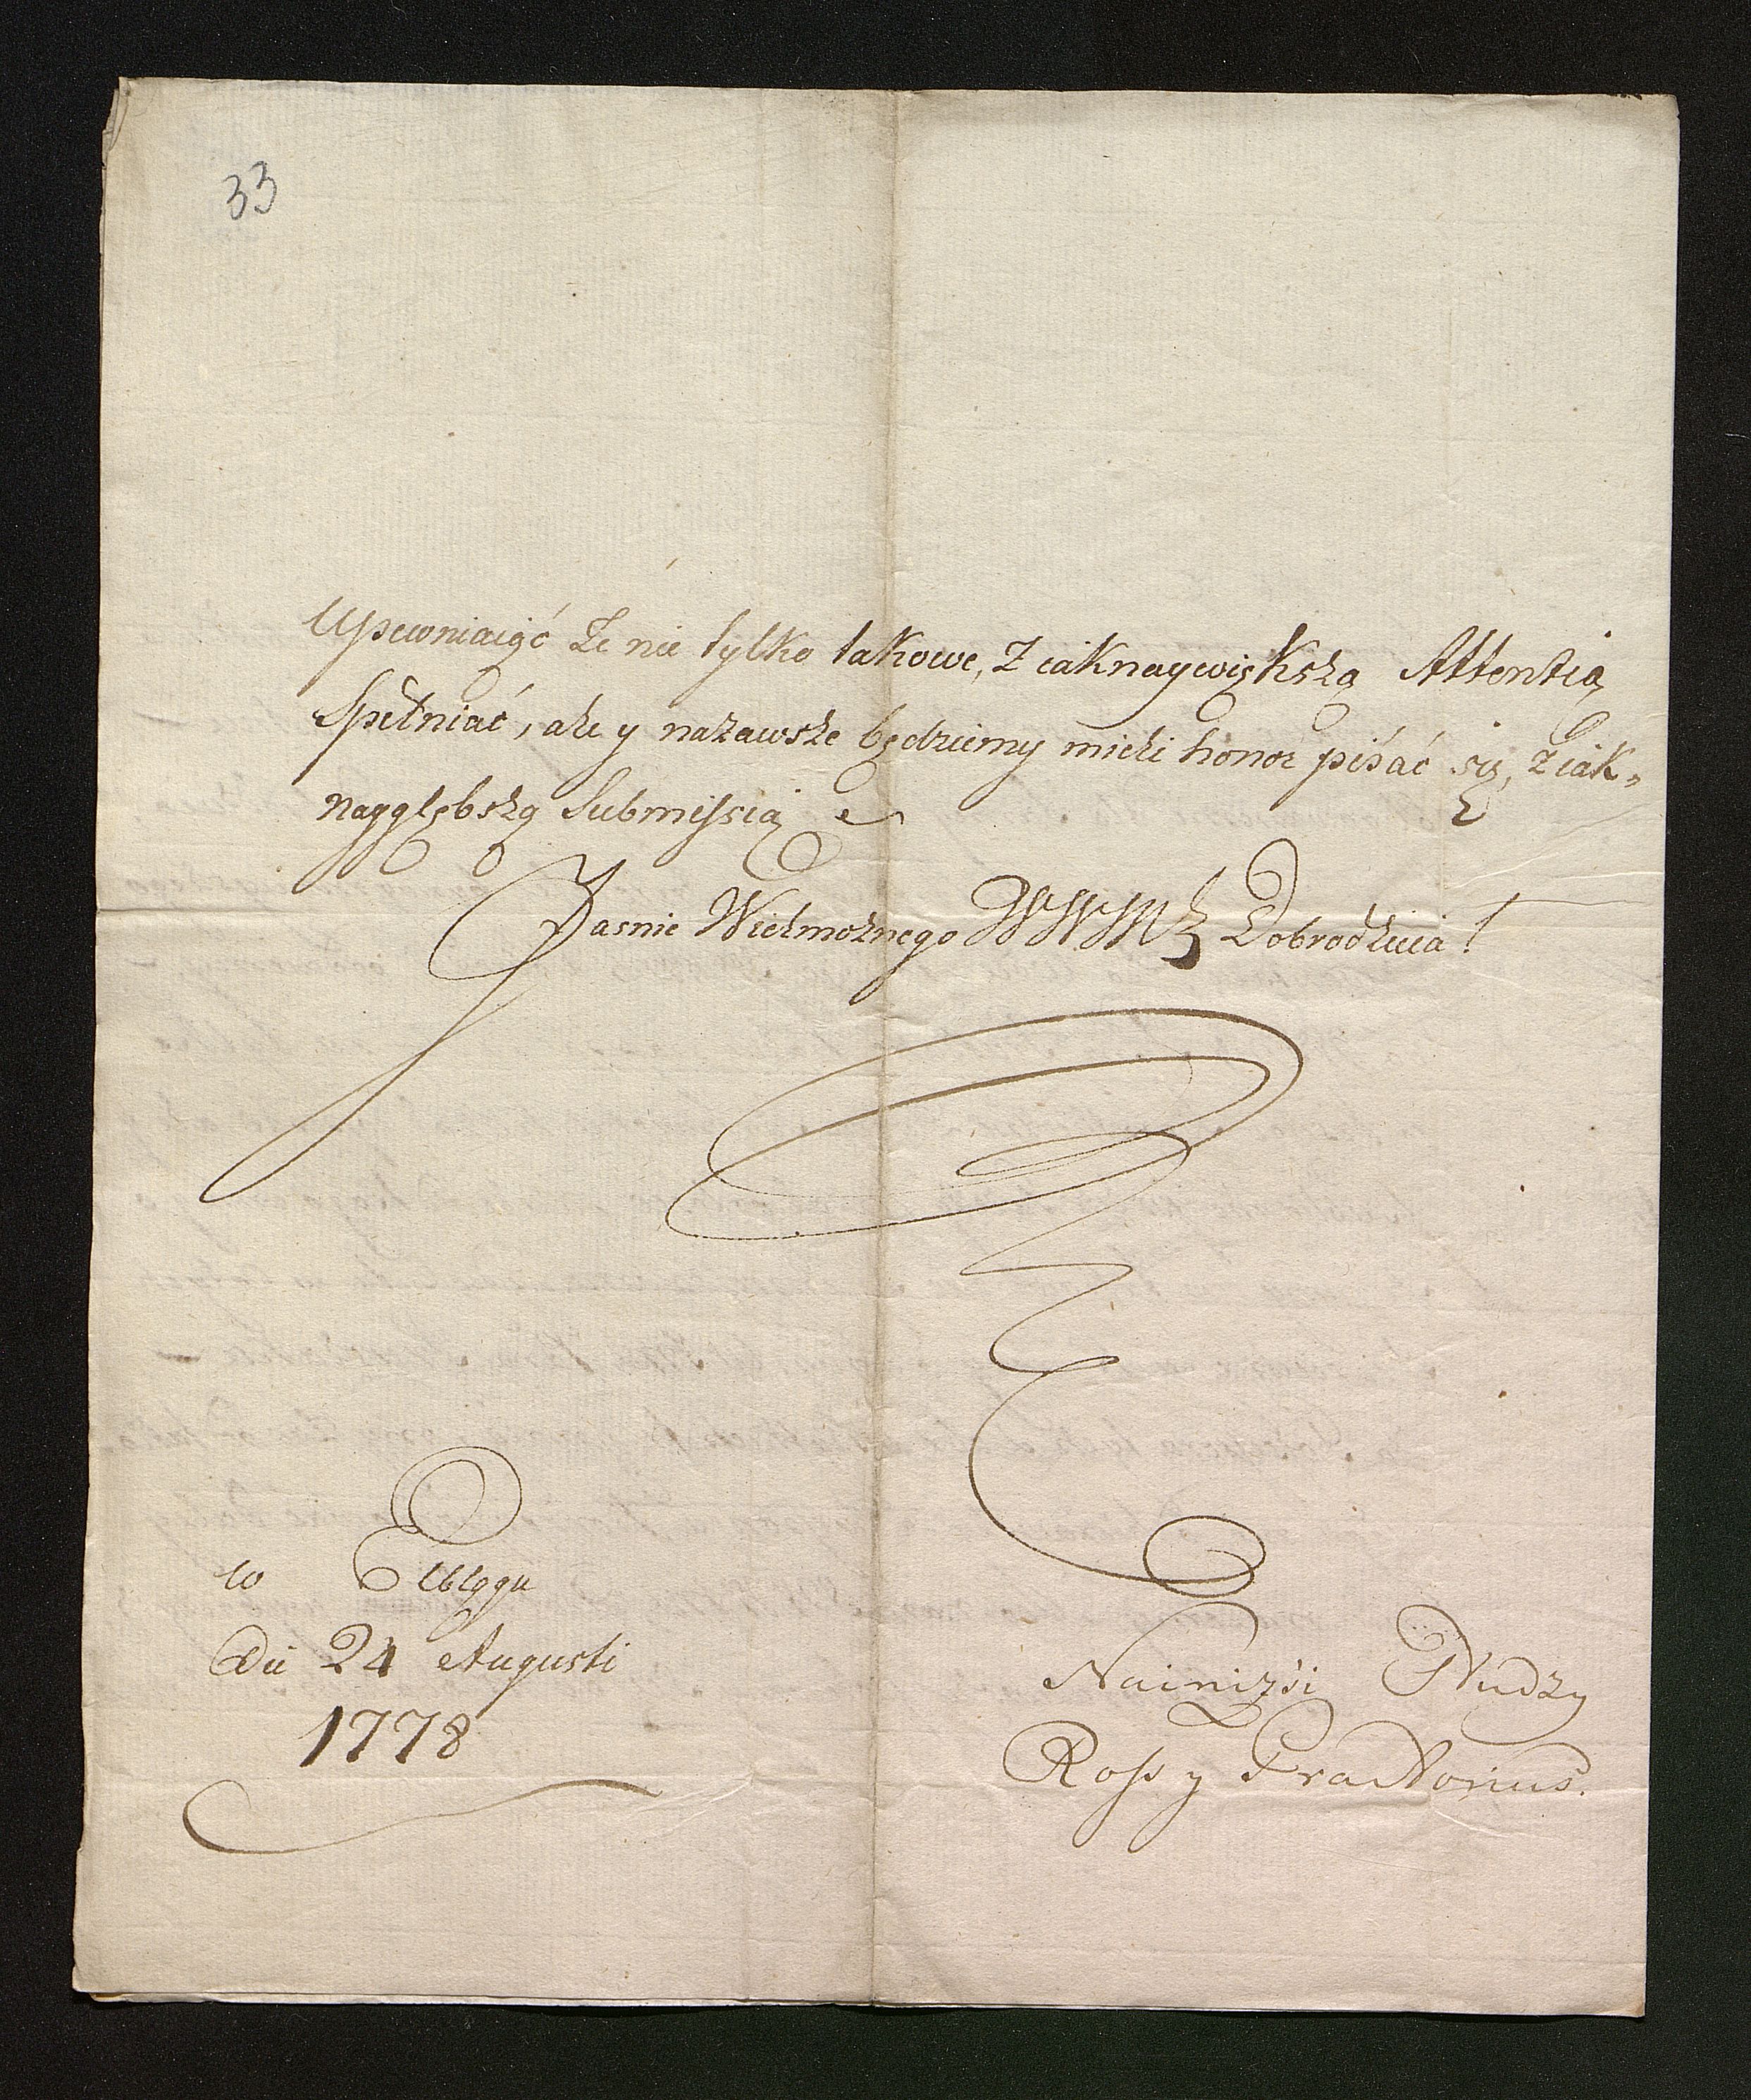 33
Upewniaiąć że nie tylko takowe, z iaknaywiększą Attentią
Spełniać, ale y nazawsze będziemy mieli honor pisać się, z iak-
nayglębszą Submissią
Jasnie Wielmożnego WWM Dobrodzieia!
w Elblągu
Die 24 Augusti
1778
Nainizśi Słudzy
Ross y Prætorius.